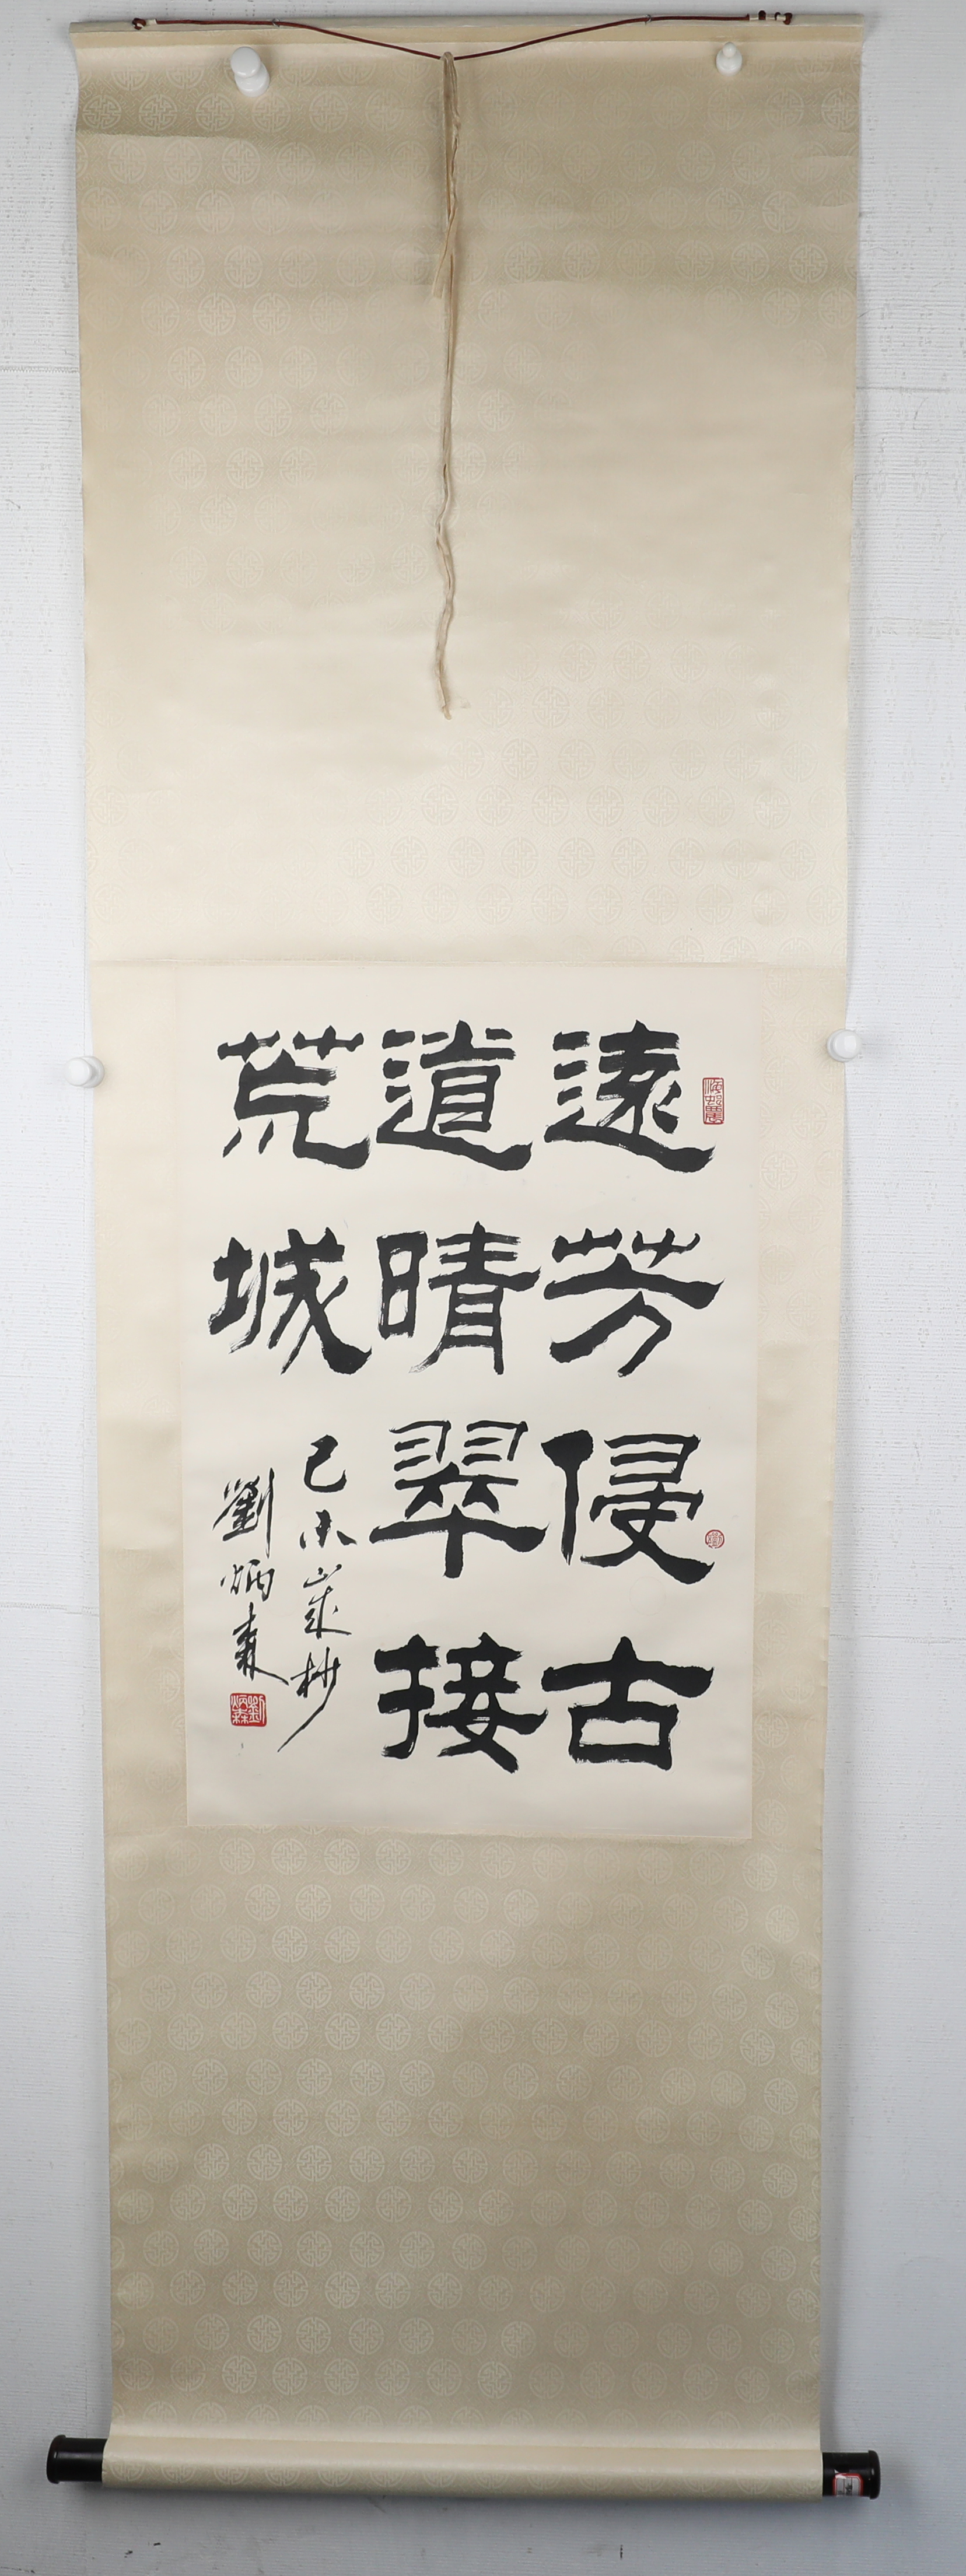 遠芳侵古
道晴翠接
荒城
己未歲杪
劉炳森
劉炳森